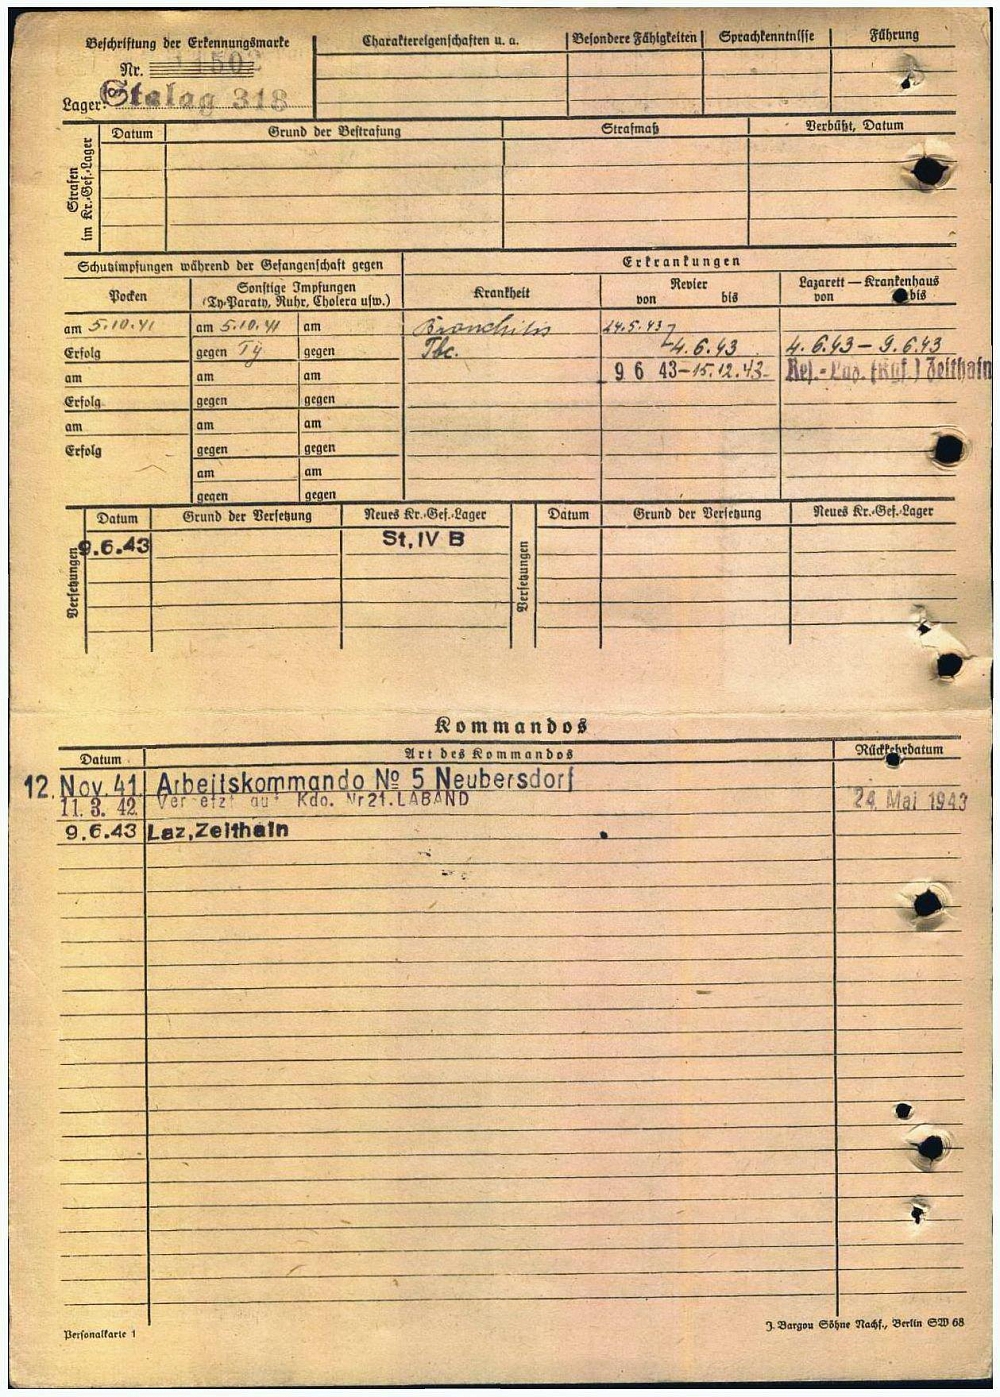 Beschriftung der Erkennungsmarke
Nr. 11502
Lager: Stalag 318
Charaktereigenschaften u. a.
Besondere Fähigkeiten
Sprachkenntnisse
Führung
Strafen im Kr.-Gef.-Lager
Datum
Grund der Bestrafung
Strafmaß
Verbüßt, Datum
Schutzimpfungen während der Gefangenschaft gegen
Erkrankungen
Pocken
Sonstige Impfungen
(Ty-Paraty, Ruhr, Cholera usw.)
Krankheit
Revier
von bis
Lazarett — Krankenhaus
von bis
am 5.10.41 am 5.10.41 am Bronchitis 24.5.43
Erfolg gegen Ty gegen Tbc. 4.6.43 4.6.43 – 9.6.43
am am am 9 6 43-15.12.43- Res.-Laz. (Kgf.) Zeithain
Erfolg gegen gegen
am am am
Erfolg gegen gegen
am am
gegen gegen
Versetzungen
Datum Grund der Versetzung Neues Kr.-Gef.-Lager
9.6.43 St,IV B
Versetzungen
Datum Grund der Versetzung Neues Kr.-Gef.-Lager
Kommandos
Datum Art des Kommandos Rückkehrdatum
12. Nov. 41 Arbeitskommando № 5 Neubersdorf
11. 3. 42 Versetzt auf Kdo. Nr21. LABAND 24. Mai 1943
9.6.43 Laz,Zeithain
Personalkarte 1
J. Bargou Söhne Nachf., Berlin SW 68